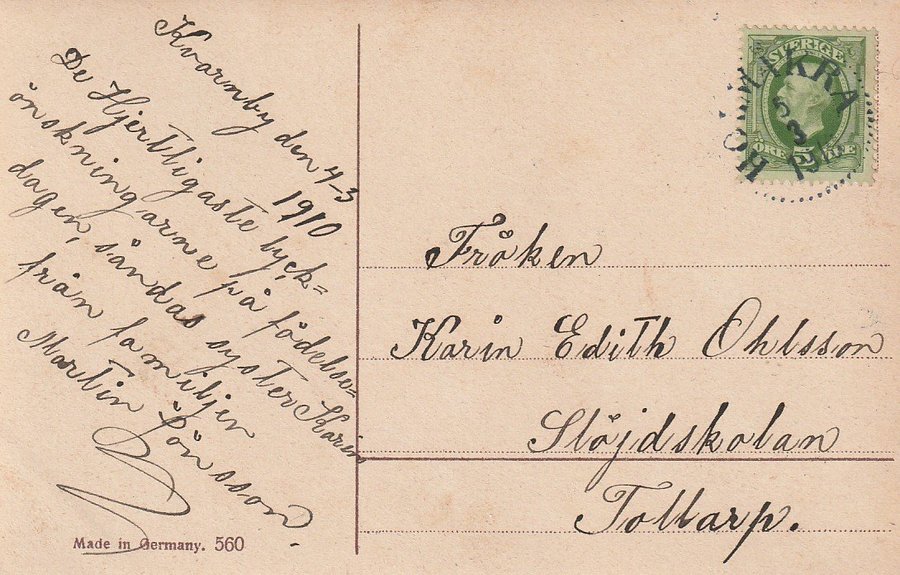 Kvarnby den 4-3
1910
De Hjertligaste lyck=
önskningarne på födelse=
dagen, sändas syster Karin
från familjen
Martin Jönsson.
Made in Germany. 560
SVERIGE
ÖRE 5
HÖ MAKRA
5
3
Fröken
Karin Edith Ohlsson
Slöjdskolan
Tollarp.